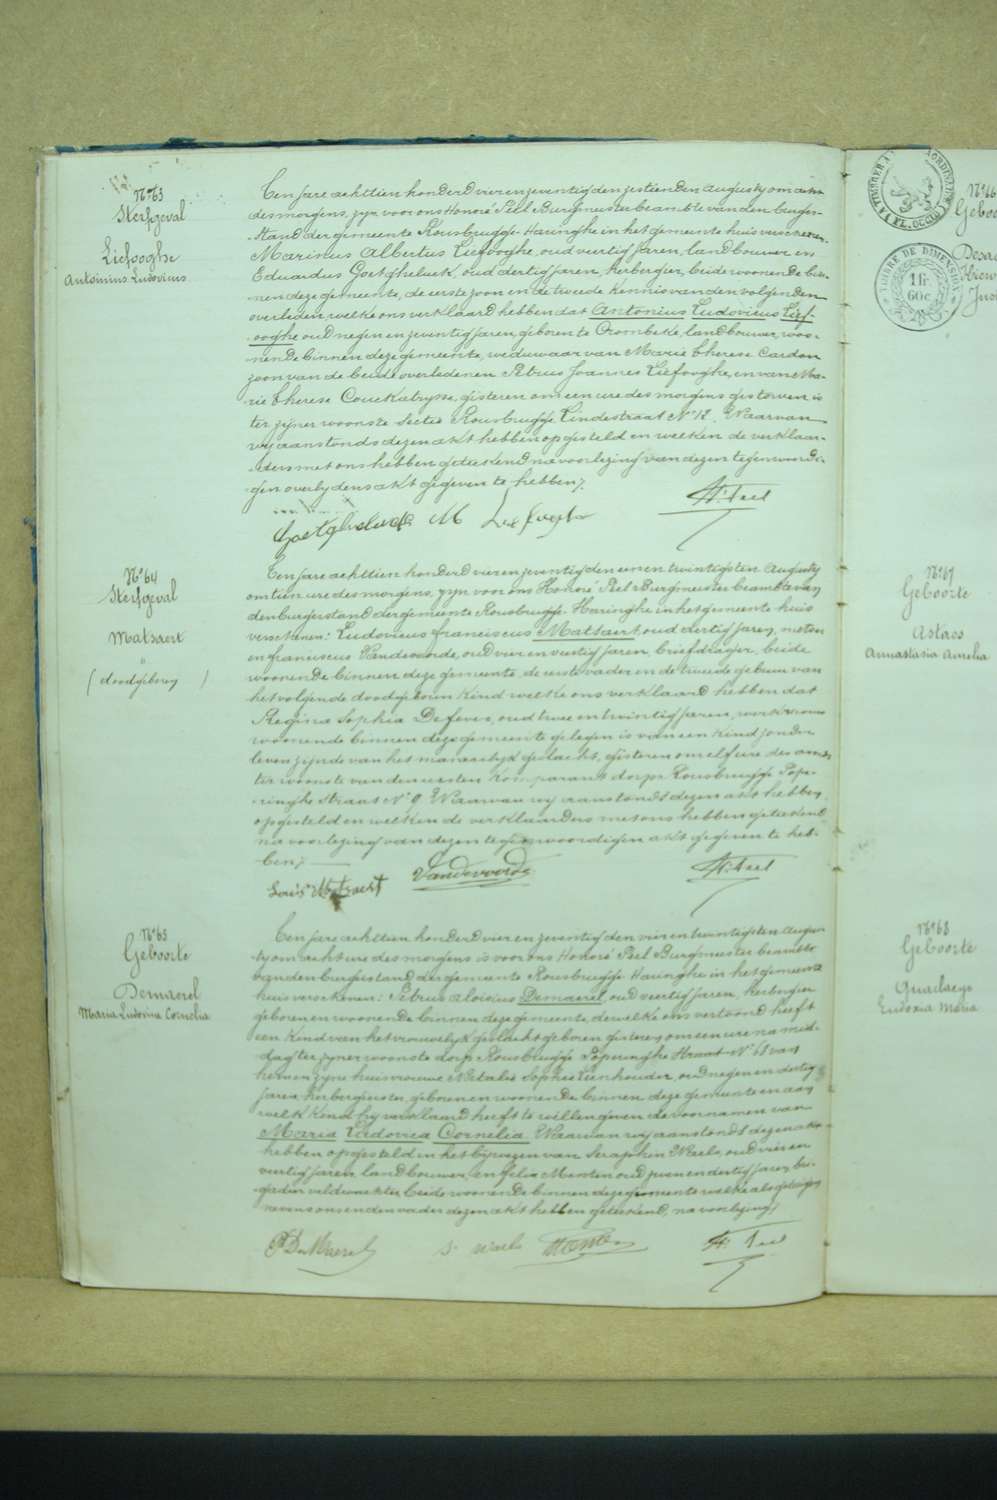 N° 63
Sterfgeval
Liefooghe
Antonius Ludovicus
Ten jare achttien honderd vier en zeventig den zestienden augusty om acht
des morgens, zyn voor ons Honoré Peel Burgmeester beambte van den burger-
stand der gemeente Rousbrugge-Haringhe in het gemeente huis verschenen:
Marinus Albertus Liefooghe, oud veertig jaren, landbouwer en
Eduardus Goetgheluck, oud dertig jaren, herbergier, beide woonende bin-
nen deze gemeente, de eerste zoon en de tweede kennis van den volgenden
overleden, welke ons verklaard hebben dat Antonius Ludovicus Lief-
ooghe oud negen en zeventig jaren, geboren te Crombeke, landbouwer, woo-
nende binnen deze gemeente, weduwaar van Marie Therese Cardon
zoon van de beide overledenen Petrus Joannes Liefooghe, en van Ma-
rie Therese Couckabrysse, gisteren om een ure des morgens gestorven is
ter zyner woonste sectie Rousbrugge Lindestraat N° 12. Waarvan
wy aanstonds dezen akt hebben opgesteld en welken de verklaar-
ders met ons hebben geteekend na voorlezing van dezen tegenwoordi-
gen overlydensakt gegeven te hebben.
Goetgheluck M Liefooghe H. Peel
N° 64
Sterfgeval
Matsaert
(doodgeboren)
Ten jare achttien honderd vier en zeventig den een en twintigsten Augusty
om tien ure des morgens, zyn voor ons Honoré Peel Burgmeester beambte van
den burgerstand der gemeente Rousbrugge-Haringhe in het gemeente huis
verschenen: Ludovicus franciscus Matsaert, oud dertig jaren, metser
en franciscus Vandevoorde, oud vier en veertig jaren briefdrager, beide
woonende binnen deze gemeente, de eerste vader en de tweede gebuur van
het volgende doodgeboren kind welke ons verklaard hebben dat
Regina Sophia Defever, oud twee en twintig jaren, werkvrouw
woonende binnen deze gemeente gelegen is van een kind zonder
leven zynde van het mannelyk geslacht, gisteren om elf ure des avonds
ter woonste van den eersten komparant dorps Rousbrugge Pope-
ringhe straat N° 9. Waarvan wy aanstonds dezen akt hebben
opgesteld en welken de verklaarders met ons hebben geteekend
na voorlezing van dezen tegenwoordigen akt gegeven te heb-
ben.
Louis Matsaert Vandevoorde H. Peel
N° 65
Geboorte
Demaerel
Maria Ludovica Cornelia
Ten jare achttien honderd vier en zeventig den vier en twintigsten augus-
ty om acht ure des morgens is voor ons Honoré Peel Burgmeester beambte
van den burgerstand der gemeente Rousbrugge Haringhe in het gemeente
huis verschenen: Petrus Aloisius Demaerel, oud veertig jaren, herbergier
geboren en woonende binnen deze gemeente, dewelke ons vertoond heeft
een kind van het vrouwelyk geslacht geboren gisteren om een ure na mid-
dag ter zyner woonste dorp Rousbrugge Poperinghe straat N° 68 van
hem en zyne huisvrouwe Natalie Sophie Eenhouder, oud negen en dertig
jaren herbergierster, geboren en woonende binnen deze gemeente en aan
welk kind hy verklaard heeft te willen geven de voornamen van
Maria Ludovica Cornelia. Waarvan wy aanstonds dezen akt
hebben opgesteld in het bywezen van Seraphin Waels, oud vier en
veertig jaren landbouwer, en felix Mersten oud zeven en dertig jaren, bri-
gadier veldwachter, beide woonende binnen deze gemeente welke als getuigen
nevens ons en den vader dezen akt hebben geteekend, na voorlezing.
P DeMaerel S. Waels H. Peel
TIMBRE DE DIMENSION
1 fr.
60c.
N° 66
N° 67
Geboorte
Astaes
Annastasia Aurelia
N° 68
Geboorte
Quaelaeys
Eudoxia Maria